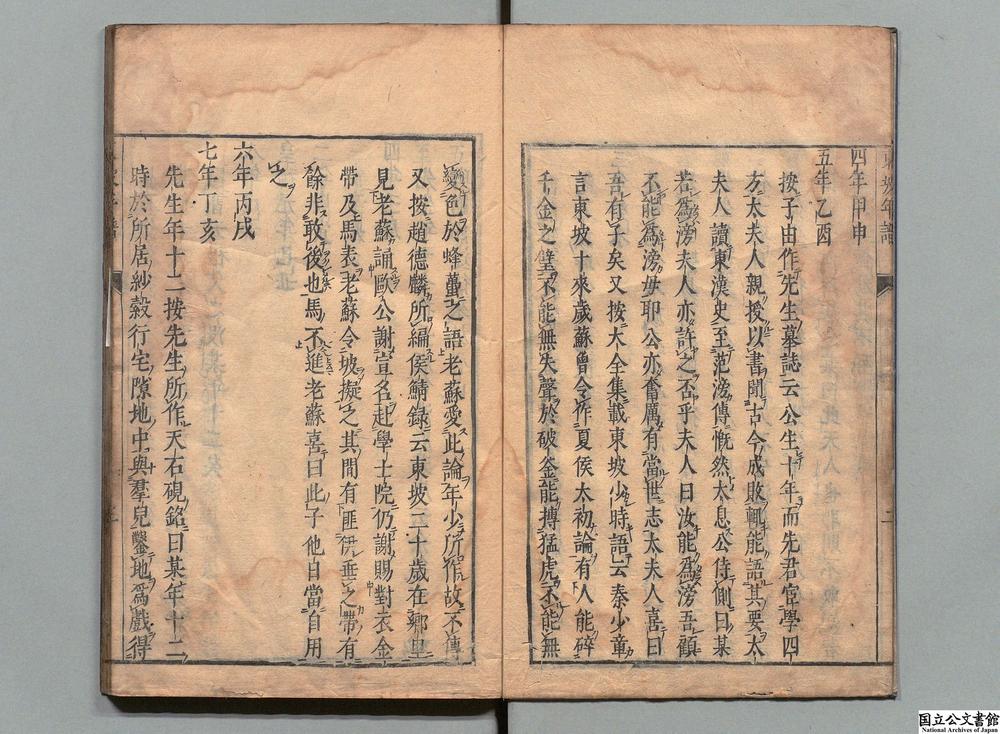 四年甲申
五年乙酉
按子由作先生墓誌云公生十年而先君宦學四
方太夫人親授以書聞古今成敗輒能語其要太
夫人讀東漢史至范滂傳慨然太息公侍側曰某
若爲滂夫人亦許之否乎夫人曰汝能爲滂吾顧
不能爲滂母耶公亦奮厲有當世志太夫人喜曰
吾有子矣又按大全集載東坡少時語云秦少章
言東坡十來歲蘇曾令作夏侯太初論有人能碎
千金之璧不能無失聲於破釜能搏猛虎不能無
變色於蜂蠆之語老蘇愛此論年少所作故不傳
又按趙德麟所編侯鯖録云東坡二十歲在鄉里
見老蘇誦歐公謝宣名赴學士院仍謝賜對衣金
帶及馬表老蘇令坡擬之其間有匪伊垂之帶有
餘非敢後也馬不進老蘇喜曰此子他日當自用
之
六年丙戌
七年丁亥
先生年十二按先生所作天石硯銘曰某年十二
時於所居紗縠行宅隙地中與羣兒鑿地爲戲得
国立公文書館
National Archives of Japan